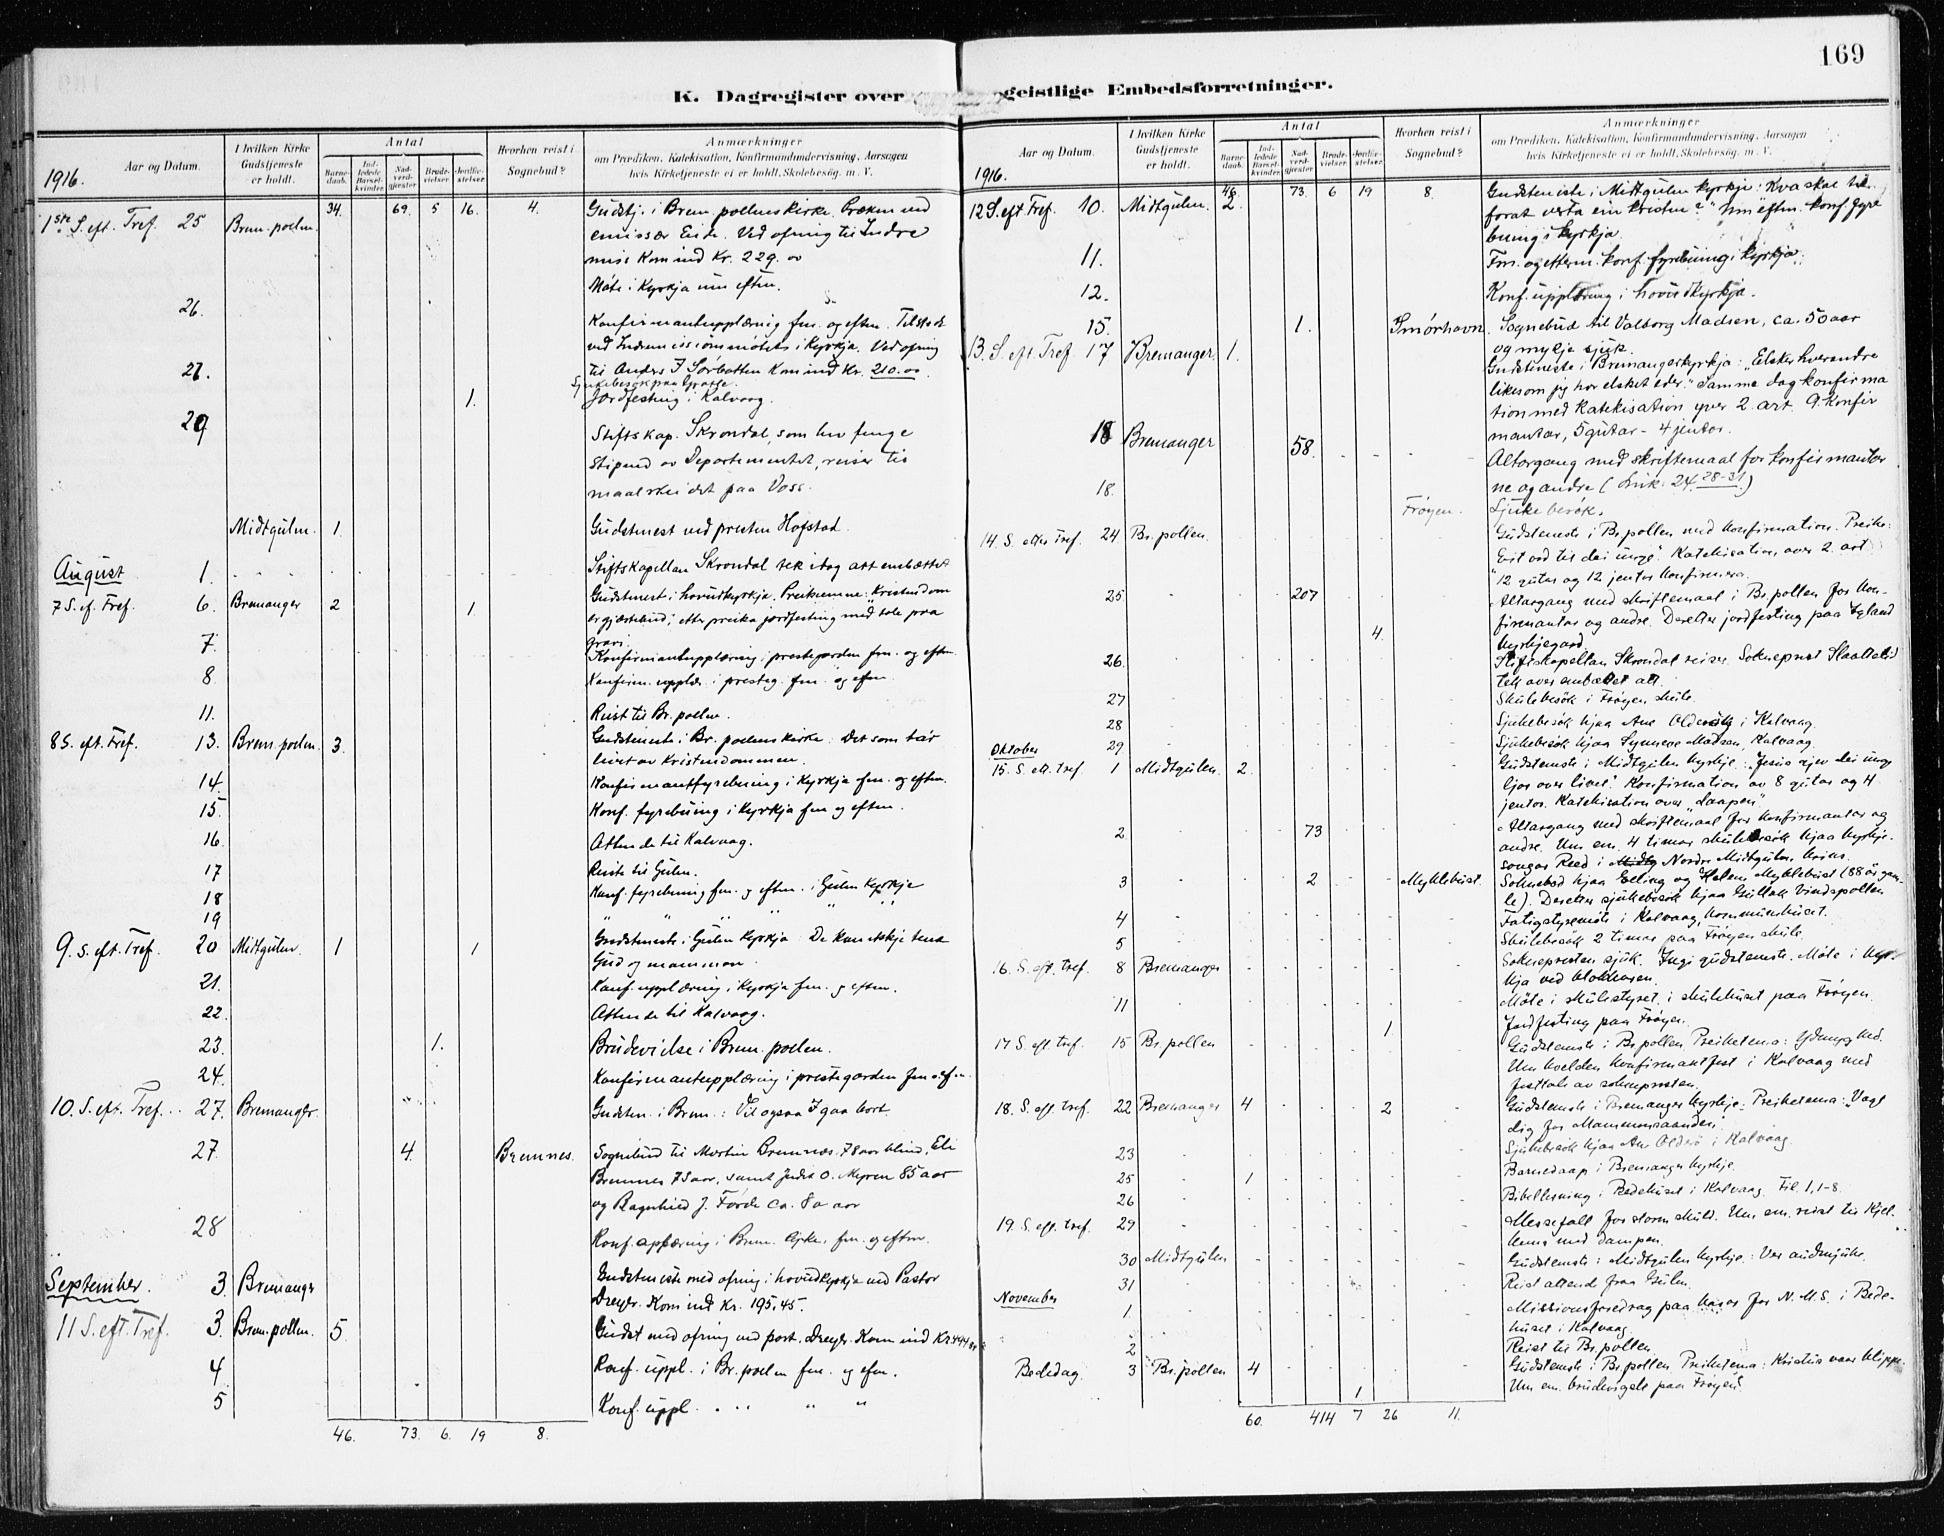 169
K. Dagregister over
geistlige Embedsforretninger.
Aar og Datum.
I hvilken Kirke Gudstjeneste er holdt.
Antal
Barnedaab.
Indledede Barselkvinder.
Nadverdgjester
Brudevielser
Jordfæstelser.
Hvorhen reist i Sognebud?
Anmærkninger
om Prædiken, Katekisation, Konfirmandundervisning, Aarsagen
hvis Kirketjeneste ei er holdt, Skolebesøg. m. V.
1916.
34. 69. 5 16. 4.
1ste S. eft. Tref. 25 Brem. pollen. Gudstj. i Brem. pollens kirke. Præken ved
emissær Eide. Ved ofring til Indre
miss. kom ind Kr. 229. oo
Møte i Kyrkja um eftm.
26. Konfirmantupplæring fm. og eftm.
ved Indremissionsmøtet i Kyrkja. Ved ofring
27. til Anders Sørbotten kom ind Kr. 210.oo
1. Jordfesting i Kalvaag.
29 Stiftskap. Skrondal, som hev fenge
Stipend av Departementet, reiser til
maalskeidet paa Voss.
Midtgulen. 1 Gudstenest ved presten Hofstad.
August 1. Stiftskapellan Skrondal tek idag att embættet
7 S. ef. Tref. 6. Bremanger 2 1 Gudstenest i hovudkyrkja. Preikeemne: Kristendom
er gjæstebud; etter preika jordfesting med tale paa
gravi.
7. Konfirmantupplæring i prestegarden fm. og eftm.
8 Konfirm. upplær. i presteg. fm. og efm.
11. Reist til Br. pollen.
8 S. eft. Tref. 13. Brem. pollen. 3. Gudsteneste i Br. pollens kirke: Det som tar
livet av Kristendommen.
14. Konfirmantfyrebuing i Kyrkja fm. og eftm.
15 Konf. fyrebuing i kyrkja fm og eftm.
16. Attende til Kalvaag.
17 Reiste til Gulen.
18 Konf. fyrebuing fm. og eftm. i Gulen Kyrkje
19 " " " " " "
9. S. eft. Tref. 20 Midtgulen. 1 1 Gudsteneste i Gulen Kyrkje: De kan ikkje tena
Gud og mammon.
21. Konf. upplæring i kyrkja fm. og eftm.
22. Attende til Kalvaag.
23. 1. Brudevielse i Brem. pollen.
24. Konfirmantupplæring i prestegarden fm
10. S. eft. Tref. 27. Bremanger. Gudsten. i Brem.: Vil ogsaa I gaa bort.
27. 4. Bremnes. Sognebud til Martin Bremnes, 78 aar blind, Eli
Bremnes 75 aar, samt Judit O. Myren 85 aar
og Ragnhild J. Førde ca. 80 aar
28 Konf. upplæring i Brem. kyrke. fm. og eftm.
September. 3. Bremanger Gudsteneste med ofring i hovudkyrkja ved Pastor
Dreyer. Kom ind kr. 195,45.
11 S. eft. Tref. 3. Brem. pollen. 5. Gudst med ofring ved past. Dreyer. Kom ind Kr.
4. Konf. uppl. i Br. pollen fm. og efm.
5 Konf. uppl. " " " "
46. 73. 6. 19 8.
Aar og Datum.
I hvilken Kirke Gudstjeneste er holdt.
Antal
Barnedaab.
Indledede Barselkvinder.
Nadverdgjester
Brudevielser
Jordfæstelser.
Hvorhen reist i Sognebud?
Anmærkninger
om Prædiken, Katekisation, Konfirmandundervisning, Aarsagen
hvis Kirketjeneste ei er holdt, Skolebesøg. m. V.
1916.
46. 73 6 19 8.
12 S. eft. Tref. 10. Midtgulen. 2. Gudsteneste i Midtgulen kyrkje: Kva skal til
forat verta ein kristen? Um eftm. konf. fyre
buing i kyrkja.
11. Fm. og efterm. konf. fyrebuing i kyrkja.
12. Konf. upplæring i hovudkyrkja.
15. 1. Smørhavn. Sognebud til Valborg Madsen, ca. 50 aar
og mykje sjuk.
13. S. eft. Tref 17 Bremanger. 1. Gudsteneste i Bremangerkyrkja: „Elsker hverandre
likesom jeg har elsket eder." Samme dag konfirma
tion med katekisation yver 2. art. 9 konfir
mantar, 5 gutar - 4 jentor.
18 Bremanger 58. Altergang med skriftemaal for konfirmantar
ne og andre (Luk. 24. 28-31)
18. Frøyen. Sjukebesøk.
14. S. etter Tref. 24 Br. pollen. Gudsteneste i Br. pollen med konfirmation. Preike:
Eit ord til dei unge. Katekisation over 2. art
12 gutar og 12 jentor konfirmera.
25 207 Altargang med skriftemaal i Br. pollen for kon-
firmantar og andre. Deretter jordfesting paa Igland
4. kyrkjegard.
26. Stiftskapellan Skrondal reiser. Soknepresten Slaattelid
tek over embædet att.
27 Skulebesøk i Frøyen skule.
28 Sjukebesøk hjaa Ane i Kalvaag.
29 Sjukebesøk hjaa Synneve Madsen, Kalvaag.
Oktober
15. S. ett. tref. 1 Midtgulen. 2. Gudsteneste i Midtgulen kyrkje: „Jesus gjev dei unge
ljos over livet". Konfirmation av 8 gutar og 4
jentor. Katekisation over „daapen".
2 73 Altargang med skriftemaal for konfirmantar og
andre. Um em. 4 timar skulebesøk hjaa kyrkje-
songar Reed i Nordre Midtgulen krins.
3 2 Myklebust. Soknebod hjaa Elling og Helene Myklebust (88 år gam-
le). Deretter sjukebesøk hjaa Gullak Vindspollen
4 Fatigstyremøte i Kalvaag, kommunehuset.
5 Skulebesøk 2 timar paa Frøyen skule.
16. S. eft. tref. 8 Bremanger Soknepresten sjuk. Ingi gudsteneste. Møte i kyr-
kja ved klokkaren.
11 Møte i skulestyret i skulehuset paa Frøyen.
1 Jordfesting paa Frøyen.
17 S. eft. tref. 15 Br. pollen Gudsteneste i Br. pollen Preiketema: Ydmyghed.
Um kvelden konfirmantfest i Kalvaag med
festtale av soknepresten.
18. S. eft. tref. 22 Bremanger 4 2 Gudsteneste i Bremanger kyrkje. Preiketema: „Vagt
dig for Mammonsaanden".
23 Sjukebesøk hjaa Ane Olderö i Kalvaag.
25 1 Barnedaap i Bremanger kyrkje.
26 Bibellesning i Bedehuset i Kalvaag. Fil. 1,1-8.
19. S. eft. tref. 29 Messefall for storm skuld. Um em. reist til Kjel-
kenes med dampen.
30 Midtgulen Gudsteneste i Midtgulen kyrkje: Ver audmjuke.
31 Reist attende fraa Gulen.
November
1 Missionsforedrag paa basar for N.M.S. i Bede-
huset i Kalvaag.
2 Reist til Br. pollen
Bededag. 3 Br. pollen 4 Gudsteneste i Br. pollen Preiketema: Kristus vaar klippe.
1 Um em. brudevigsle paa Frøyen.
60. 414 7 26 11.